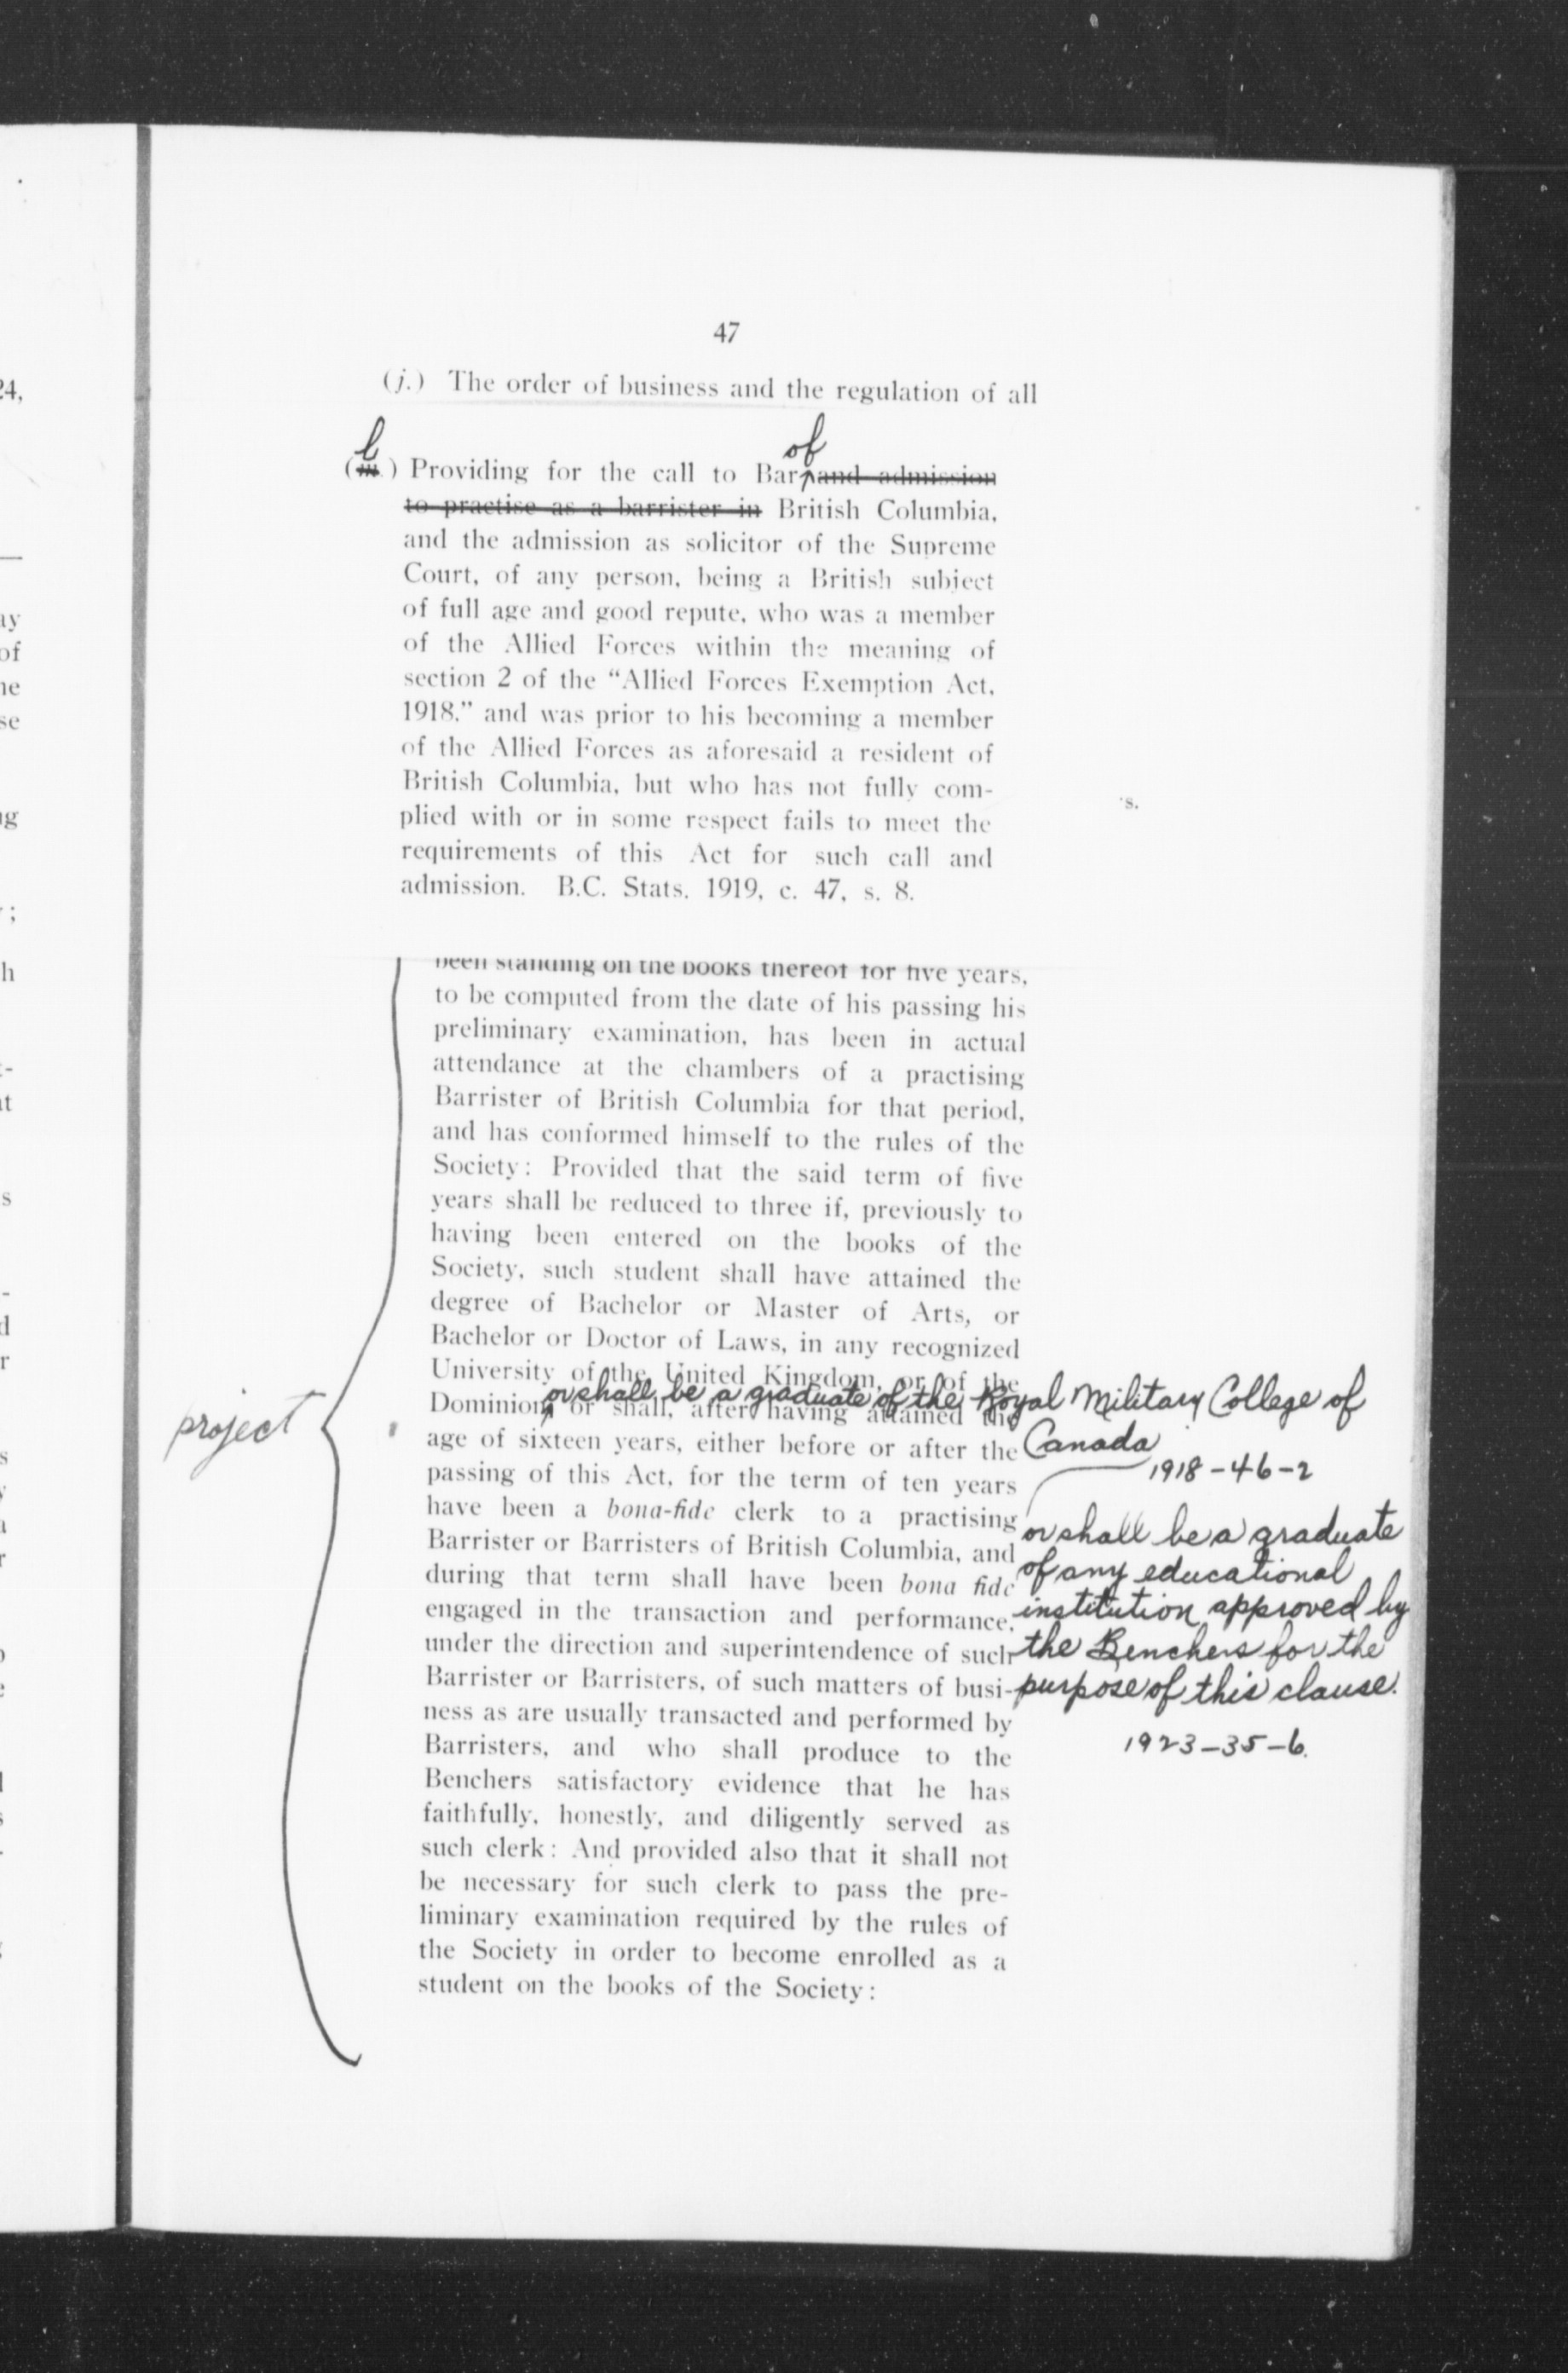 47
(j.) The order of business and the regulation of all
l of
(m.) Providing for the call to Bar and admission
to practise as a barrister in British Columbia,
and the admission as solicitor of the Supreme
Court, of any person, being a British subject
of full age and good repute, who was a member
of the Allied Forces within the meaning of
section 2 of the “Allied Forces Exemption Act,
1918,” and was prior to his becoming a member
of the Allied Forces as aforesaid a resident of
British Columbia, but who has not fully com-
plied with or in some respect fails to meet the
requirements of this Act for such call and
admission. B.C. Stats. 1919, c. 47, s. 8.
been standing on the books thereof for five years,
to be computed from the date of his passing his
preliminary examination, has been in actual
attendance at the chambers of a practising
Barrister of British Columbia for that period,
and has conformed himself to the rules of the
Society: Provided that the said term of five
years shall be reduced to three if, previously to
having been entered on the books of the
Society, such student shall have attained the
degree of Bachelor or Master of Arts, or
Bachelor or Doctor of Laws, in any recognized
University of the United Kingdom, or of the
or shall be a graduate of the Royal Military College of
Canada
1918-46-2
or shall be a graduate
of any educational
institution approved by
the Benchers for the
purpose of this clause.
1923-35-6.
project
Dominion, or shall, after having attained the
age of sixteen years, either before or after the
passing of this Act, for the term of ten years
have been a bona-fide clerk to a practising
Barrister or Barristers of British Columbia, and
during that term shall have been bona fide
engaged in the transaction and performance,
under the direction and superintendence of such
Barrister or Barristers, of such matters of busi-
ness as are usually transacted and performed by
Barristers, and who shall produce to the
Benchers satisfactory evidence that he has
faithfully, honestly, and diligently served as
such clerk: And provided also that it shall not
be necessary for such clerk to pass the pre-
liminary examination required by the rules of
the Society in order to become enrolled as a
student on the books of the Society: